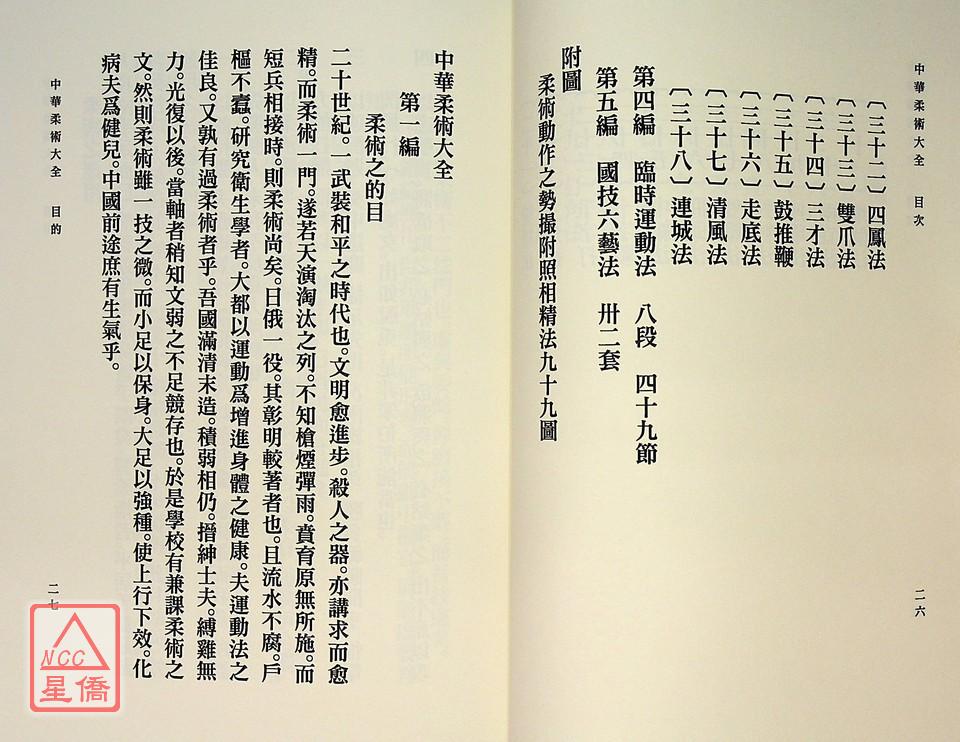 中華柔術大全　目次
〔三十二〕四鳳法
〔三十三〕雙爪法
〔三十四〕三才法
〔三十五〕鼓推鞭
〔三十六〕走底法
〔三十七〕清風法
〔三十八〕連城法
第四編　臨時運動法　八段　四十九節
第五編　國技六藝法　卅二套
附圖
柔術動作之勢撮附照相精法九十九圖
二六
中華柔術大全
第一編
柔術之的目
二十世紀。一武裝和平之時代也。文明愈進步。殺人之器。亦講求而愈
精。而柔術一門。遂若天演淘汰之列。不知槍煙彈雨。賁育原無所施。而
短兵相接時。則柔術尚矣。日俄一役。其彰明較著者也。且流水不腐。戶
樞不蠹。研究衛生學者。大都以運動爲增進身體之健康。夫運動法之
佳良。又孰有過柔術者乎。吾國滿清末造。積弱相仍。搢紳士夫。縛雞無
力。光復以後。當軸者稍知文弱之不足競存也。於是學校有兼課柔術之
文。然則柔術雖一技之微。而小足以保身。大足以強種。使上行下效。化
病夫爲健兒。中國前途庶有生氣乎。
中華柔術大全　目的
二七
NCC
星僑